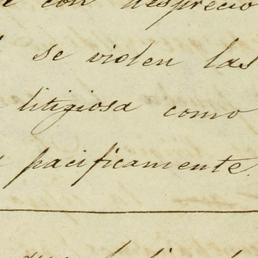 con desprecio
se violen las
litigiosa como
pacificamente.